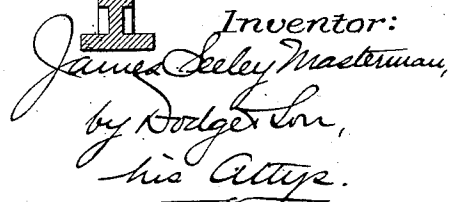 Inventor:
James Seeley Masterman,
by Dodge & Son,
his Attys.